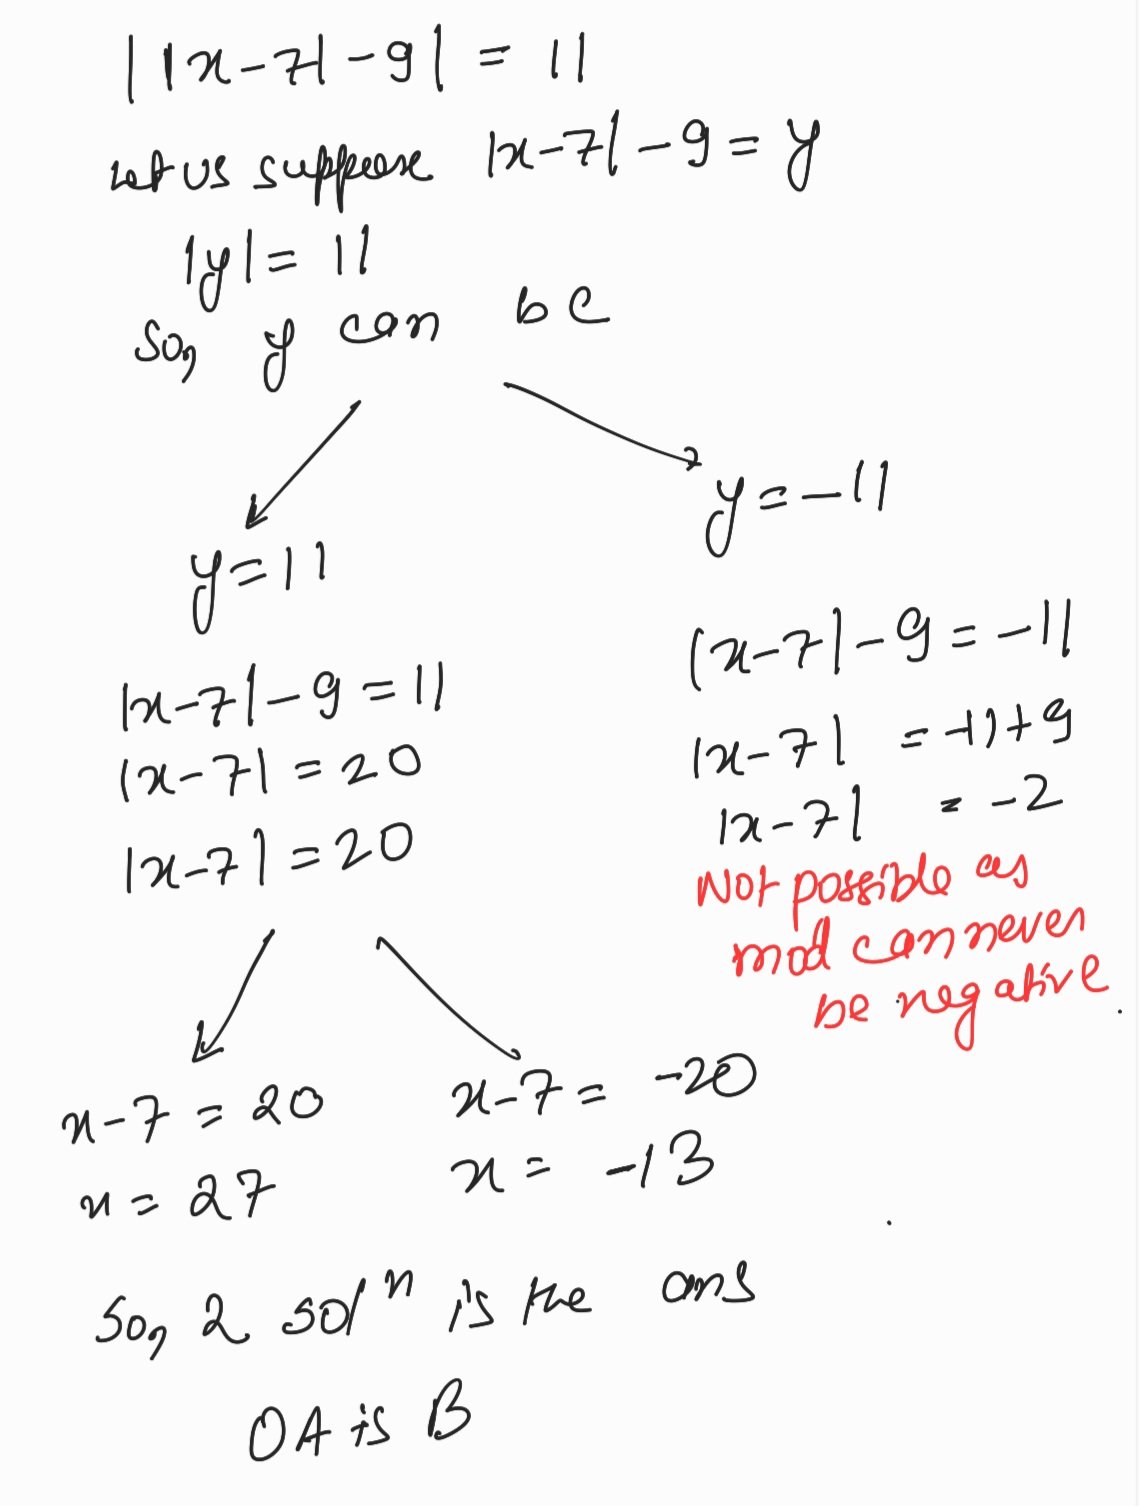 ||x-7|-9| = 11
Let us suppose |x-7|-9 = y
|y| = 11
So, y can be
y = 11
|x-7|-9 = 11
|x-7| = 20
|x-7| = 20
x-7 = 20
x = 27
x-7 = -20
x = -13
y = -11
|x-7|-9 = -11
|x-7| = -11+9
|x-7| = -2
Not possible as
mod can never
be negative
So, 2 solⁿ is the ans
OA is B